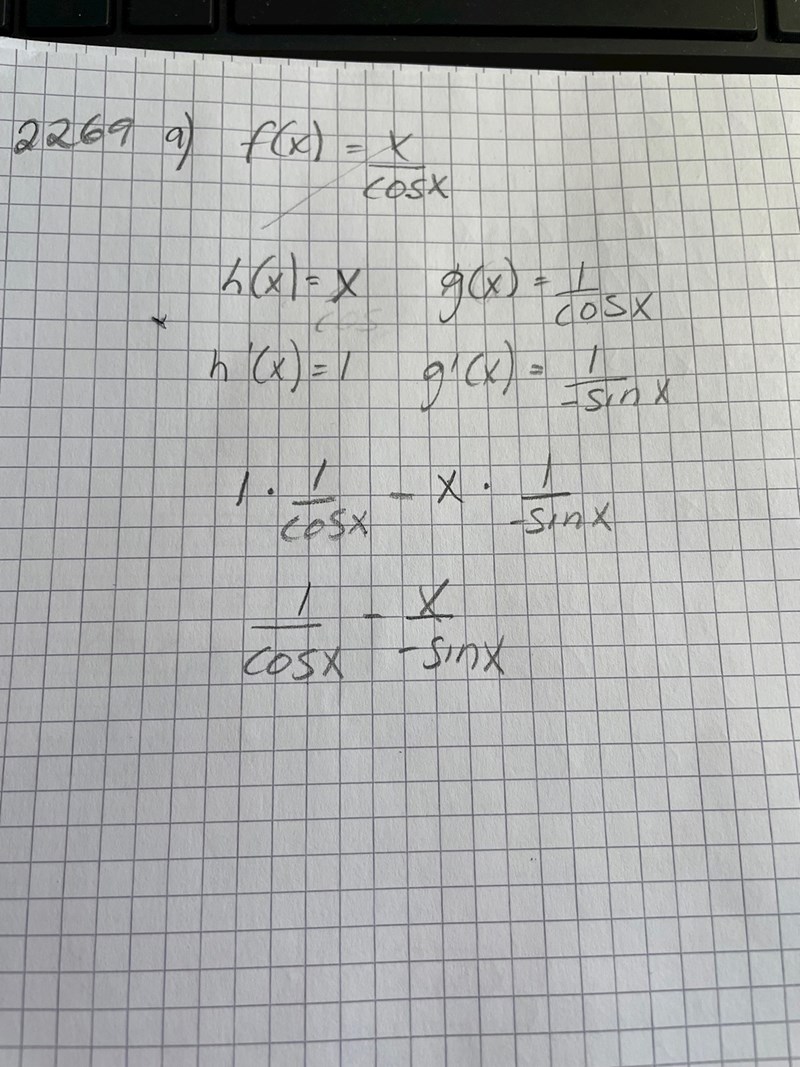 2269 a) f(x) = x/cosx
h(x) = x g(x) = 1/cosx
cos
h'(x) = 1 g'(x) = 1/-sinx
1 · 1/cosx - x · 1/-sinx
1/cosx - x/-sinx